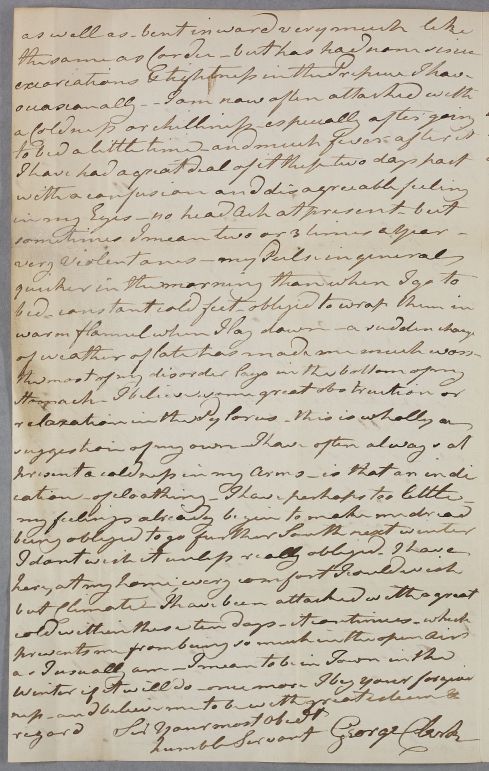 as well as - bent inward very much like
the same as Corder - but has had none since
excoriations & tightness in the Prepuce I have
ocasianally - I am now often attacked with
a Coldness or chilliness especially after going
to bed a little time - and much fever after it
I have had a great deal of it these two days past
with a confusion and disagreeable feeling
in my Eyes - no head Ach at present - but
sometimes I mean two or 3 times a year -
very violent ones - my Puls. in general
quicker in the morning than when I go to
bed - constant cold feet obliged to wrap them in
warm flannel when I lay down - a sudden change
of weather of late has made me much worse
the most of my disorder lays in the bottom of my
Stomach - I believe some great obstruction or
relaxation in the Pylorus - this is wholly a
suggestion of my own - I have often always at
present a coldness in my Arms - is that an indi
cation - of cloathing - I have perhaps too little -
my feelings already begin to make me dread
being obliged to go further South next winter
I dont wish it unless really obliged - I have
here, at my home every comfort I could wish
but Climate - I have been attacked with a great
cold within these ten days - it continues - which
prevents me from being so much in the open air
as I usually am - I mean to be in Town in the
Winter if it will do - once more I beg your forgive
ness - and believe me to be with great esteem &
regard Sir Your most obedt
humble Servant George Clerk